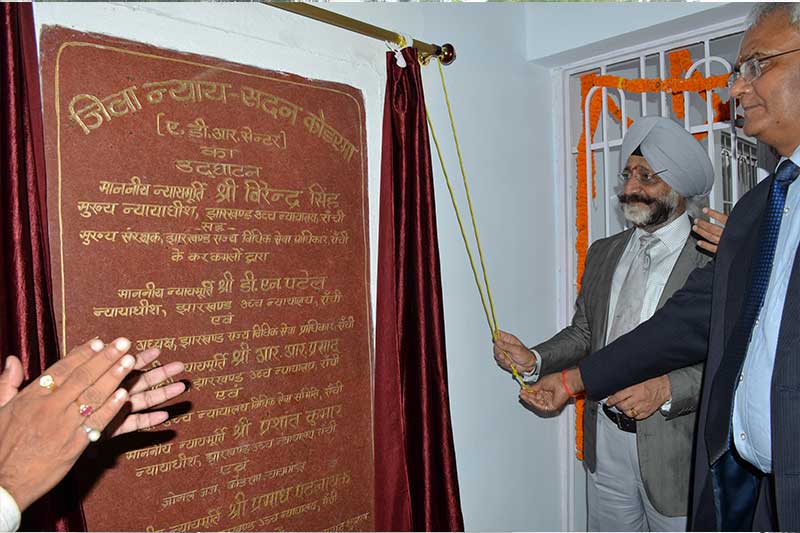 जिला न्याय-सदन कोडरमा
[ए.डी.आर.सेन्टर]
का
उद्घाटन
माननीय न्यायमूर्ति श्री विरेन्द्र सिंह
मुख्य न्यायाधीश, झारखण्ड उच्च न्यायालय, राँची
सह-
मुख्य संरक्षक, झारखण्ड राज्य विधिक सेवा प्राधिकार, राँची
के कर कमलों द्वारा
माननीय न्यायमूर्ति श्री डी.एन.पटेल
न्यायाधीश, झारखण्ड उच्च न्यायालय, राँची
एवं
अध्यक्ष, झारखण्ड राज्य विधिक सेवा प्राधिकार, राँची
न्यायमूर्ति श्री आर.आर.प्रसाद
झारखण्ड उच्च न्यायालय, राँची
एवं
उच्च न्यायालय विधिक सेवा समिति, राँची
न्यायमूर्ति श्री प्रशांत कुमार
न्यायाधीश, झारखण्ड उच्च न्यायालय, राँची
एवं
जोनल जज, कोडरमा
श्री प्रमाथ पटनायक
न्यायाधीश, झारखण्ड उच्च न्यायालय, राँची